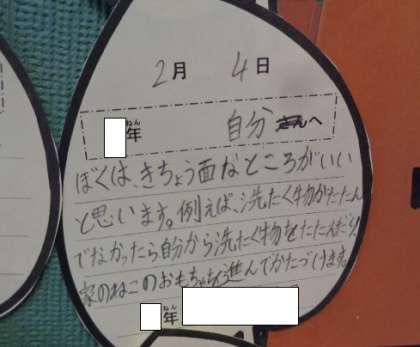 2月 4日
年 自分さんへ
ぼくは、きちょう面なところがいい
と思います。例えば、洗たく物がたたん
でなかったら自分から洗たく物をたたんだり、
家のねこのおもちゃも進んでかたづけます。
年